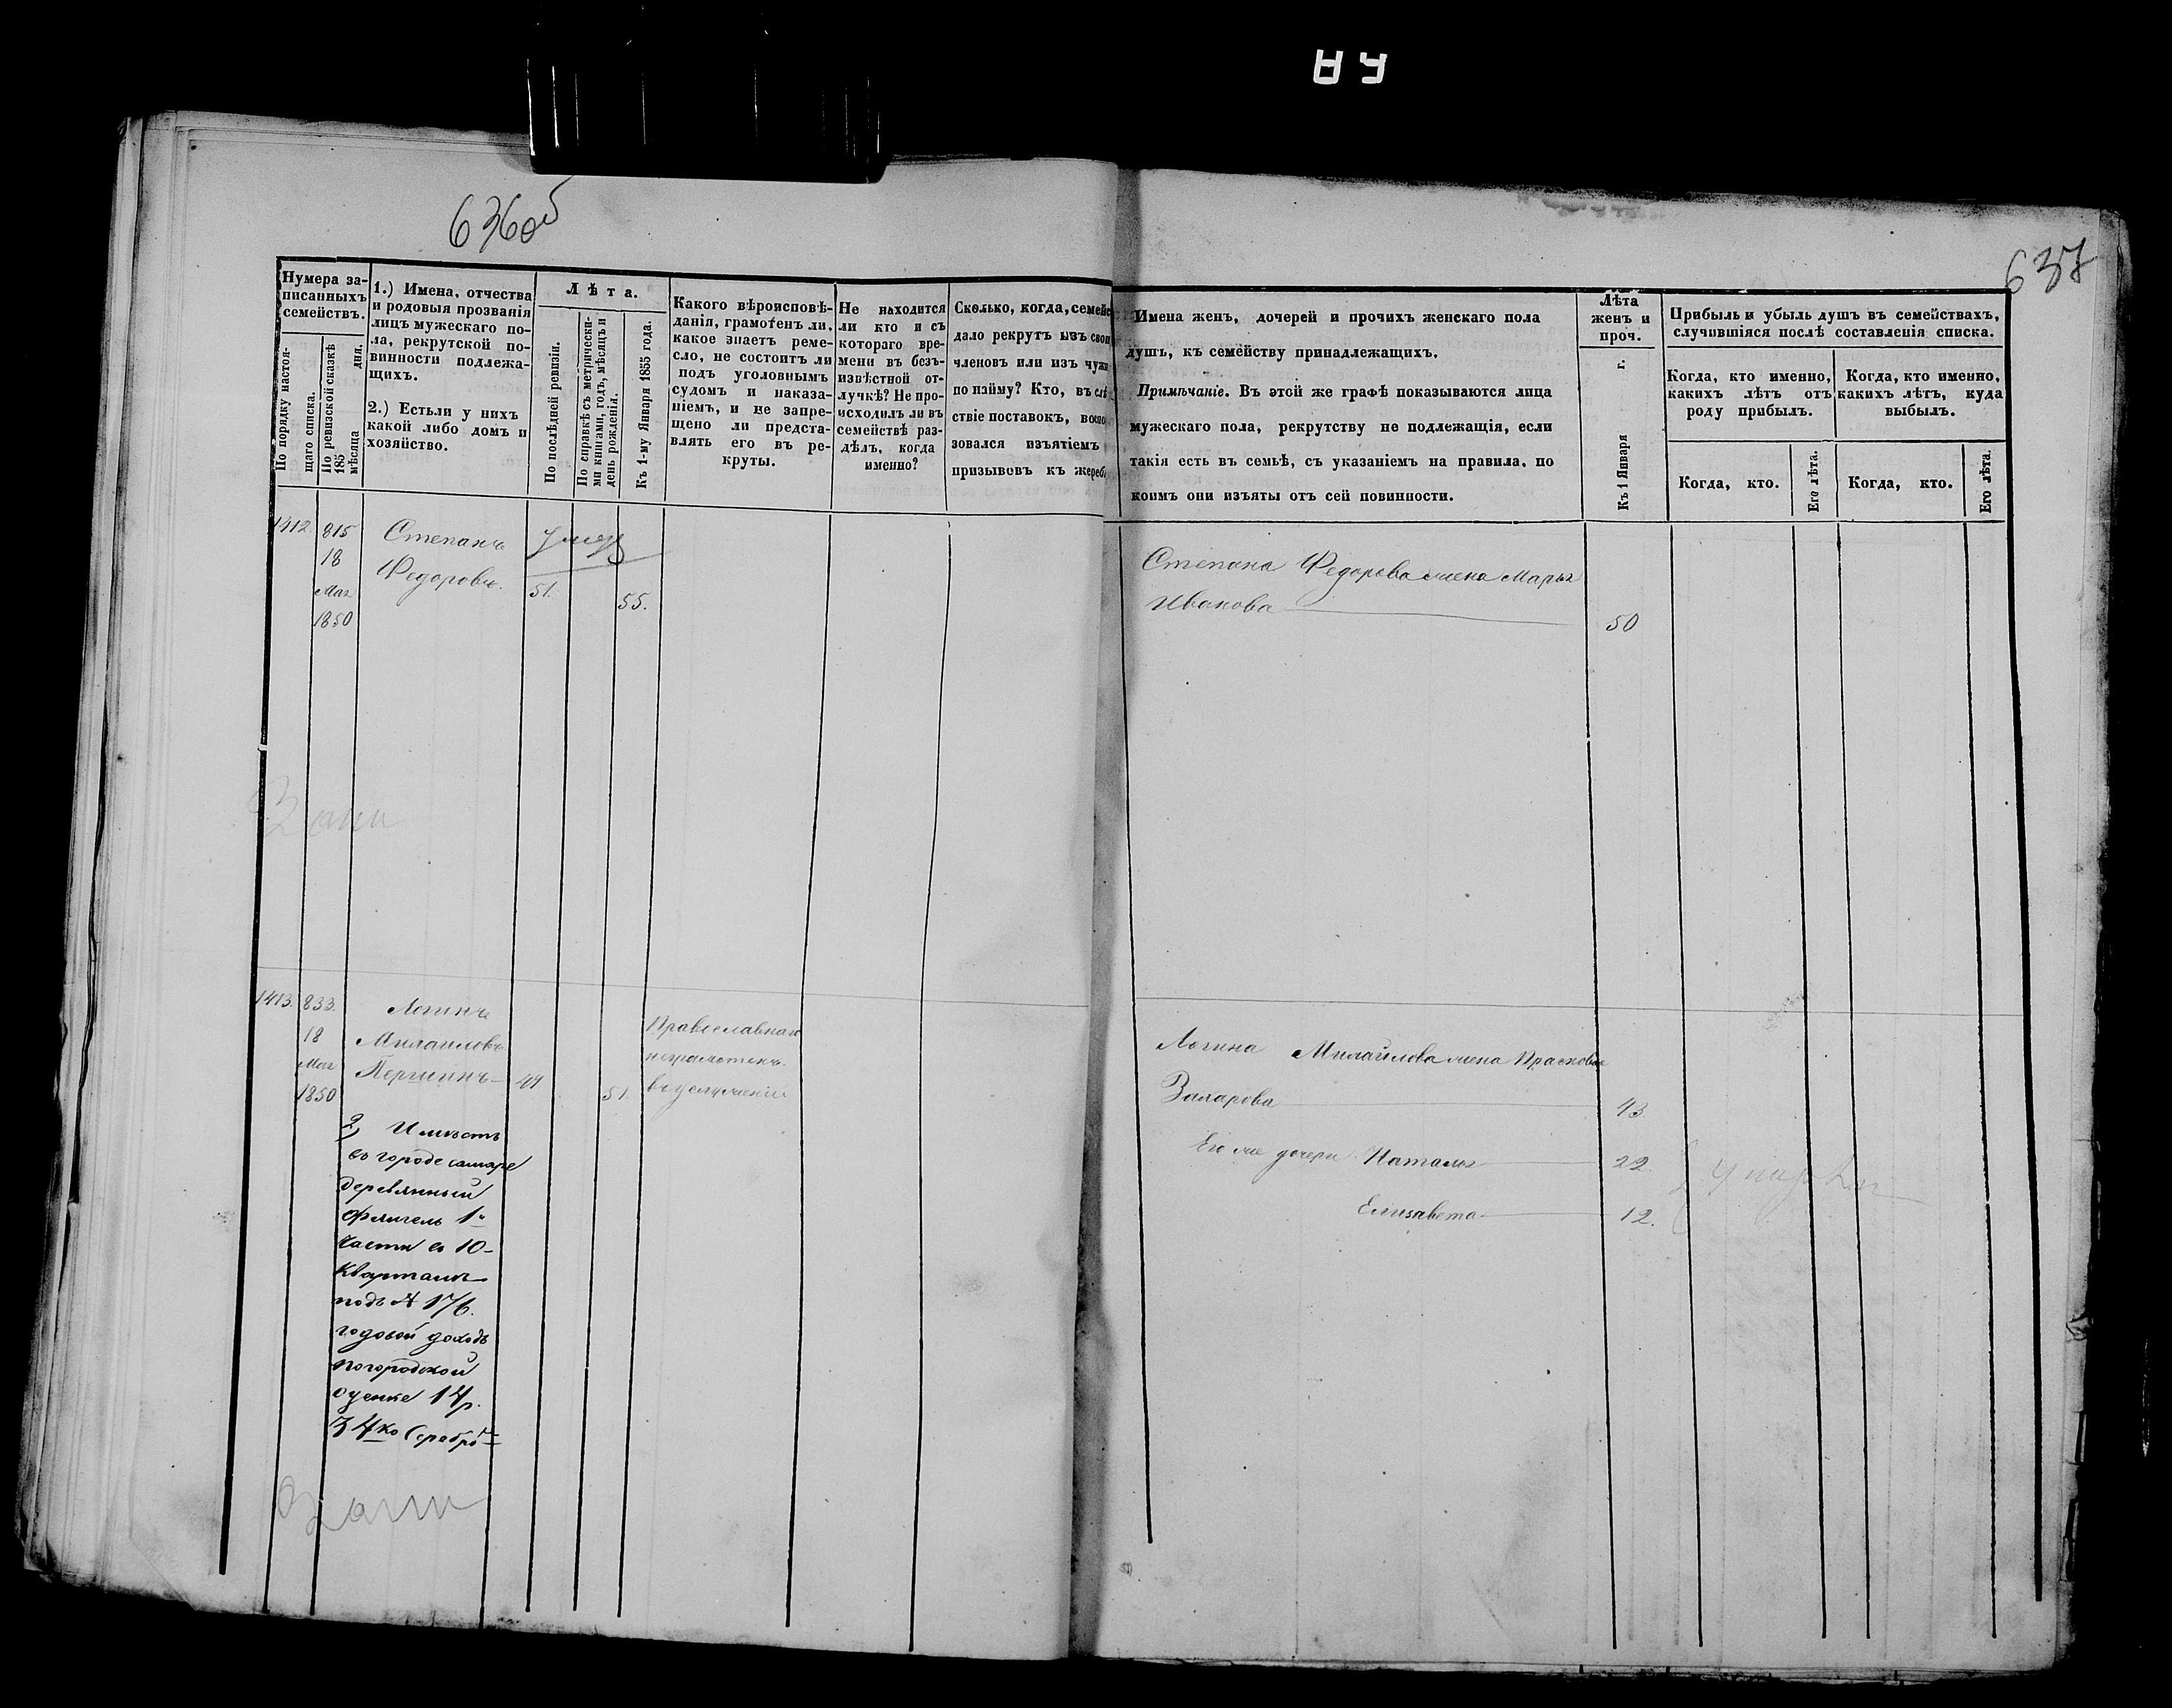 636об
637
Нумера за-
писанныхъ
семействъ.
По порядку настоя-
щаго списка.
По ревизской сказкѣ
185
мѣсяца дня.
1.) Имена, отчества
и родовыя прозванія
лицъ мужескаго по-
ла, рекрутской по-
винности подлежа-
щихъ.
2.) Естьли у нихъ
какой либо домъ и
хозяйство.
Лѣта.
По послѣдней ревизіи.
По справкѣ съ метрически-
ми книгами, годъ, мѣсяцъ и
день рожденія.
Къ 1-му Января 1855 года.
Какого вѣроисповѣ-
данія, грамотенъ ли,
какое знаетъ реме-
сло, не состоитъ ли
подъ уголовнымъ
судомъ и наказа-
ніемъ, и не запре-
щено ли предста-
влять его въ ре-
круты.
Не находится
ли кто и съ
котораго вре-
мени въ безъ-
извѣстной от-
лучкѣ? Не про-
исходилъ ли въ
семействѣ раз-
дѣлъ, когда
именно?
Сколько, когда, семейс
дало рекрутъ изъ свои
членовъ или изъ чужи
по найму? Кто, въ слѣ
ствіе поставокъ, воспо
зовался изъятіемъ
призывовъ къ жереб
Имена женъ, дочерей и прочихъ женскаго пола
душъ, къ семейству принадлежащихъ.
Примѣчаніе. Въ этой же графѣ показываются лица
мужескаго пола, рекрутству не подлежащія, если
такія есть въ семьѣ, съ указаніемъ на правила, по
коимъ они изъяты отъ сей повинности.
Лѣта
женъ и
проч.
Къ 1 Января г.
Прибыль и убыль душъ въ семействахъ,
случившіяся послѣ составленія списка.
Когда, кто именно,
какихъ лѣтъ отъ
роду прибылъ.
Когда, кто именно,
какихъ лѣтъ, куда
выбылъ.
Когда, кто.
Его лѣта.
Когда, кто.
Его лѣта.
1412. 815
18
Мая
1850
Степанъ
Федоровъ.
умеръ
51.
55.
Степана Федорова жена Марья
Иванова
50
1413. 833.
18
Мая
1850
Логинъ
Михаиловъ
44
51.
Православнаго
неграмотенъ.
въ услуженіи
2) Имѣетъ
въ городе самаре
деревянный
флигель 1й
части в 10-
Квартале
подъ № 176.
годовой доходъ
погородской
оценке 14р.
34 ко Серебр
Логина Михайлова жена Прасковья
Захарова
43.
Его же дочери Наталья
22.
Елизавета
12.